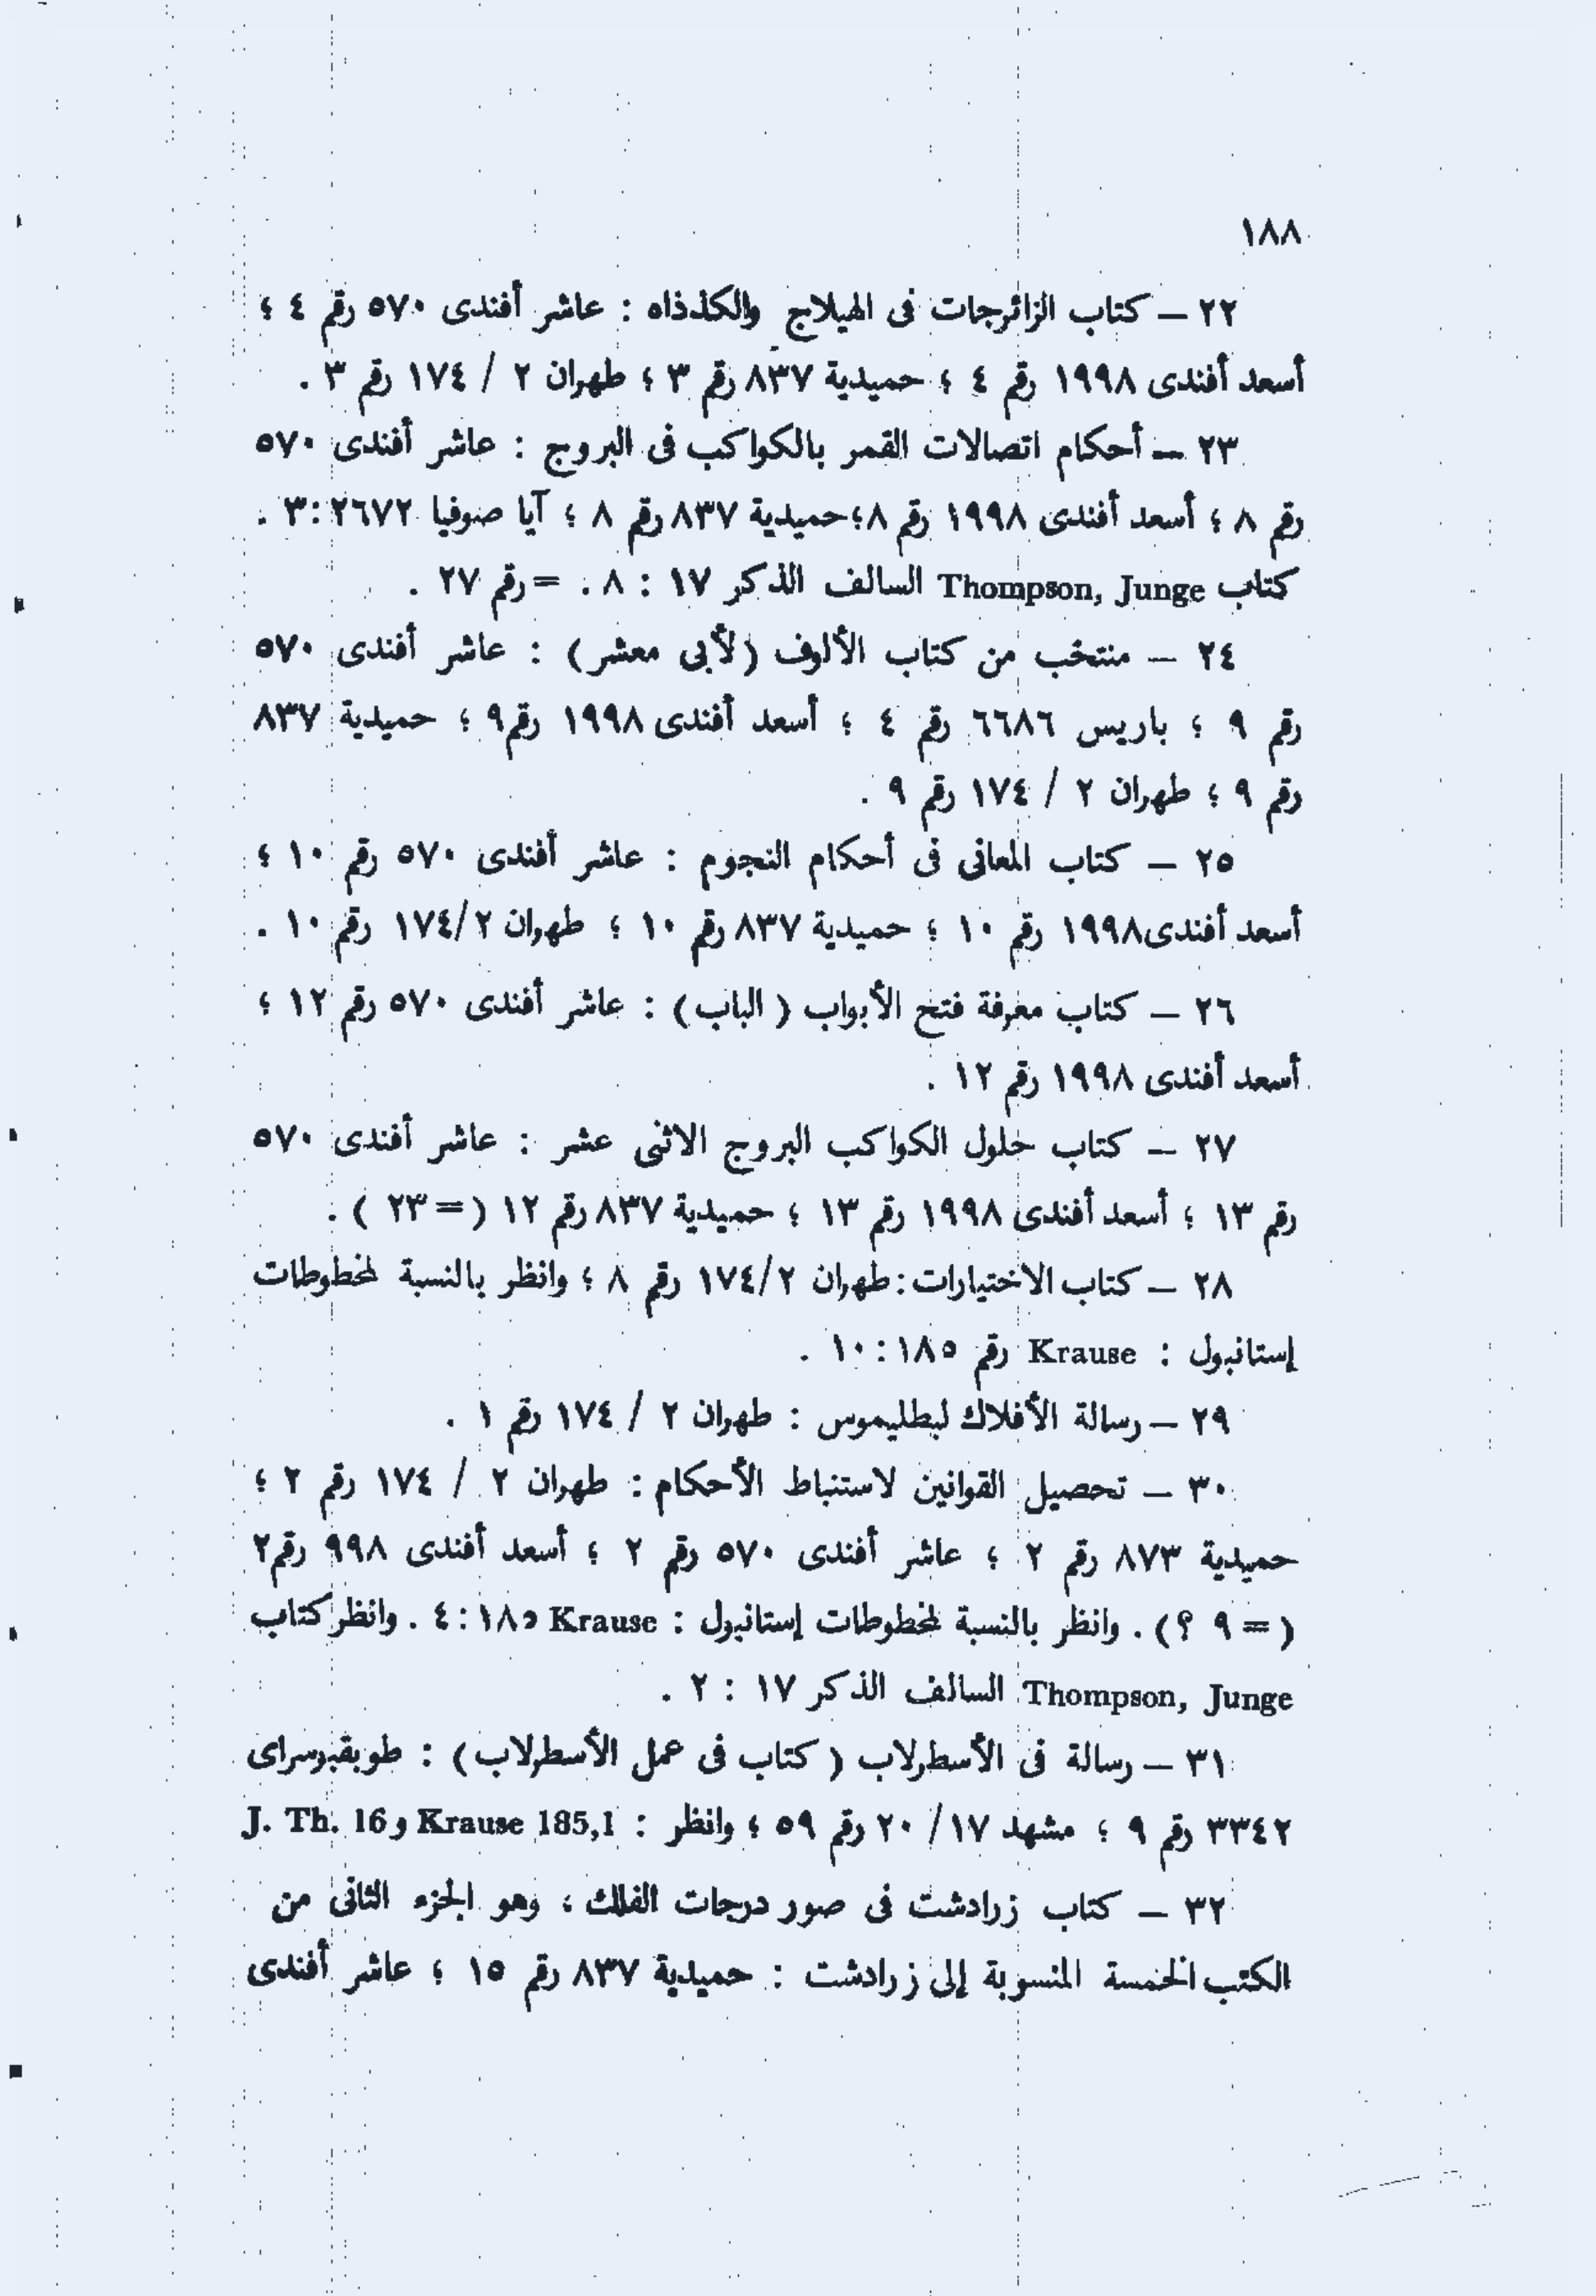 ١٨٨
٢٢ — كتاب الزائرجات فى الهيلاج والكذذاه : عاشر أفندى ٥٧٠ رقم ٤ ؛
أسعد أفندى ١٩٩٨ رقم ٤ ؛ حميدية ٨٣٧ رقم ٣ ؛ طهران ٢ / ١٧٤ رقم ٣ .
٢٣ — أحكام اتصالات القمر بالكواكب فى البروج : عاشر أفندى ٥٧٠
رقم ٨ ؛ أسعد أفندى ١٩٩٨ رقم ٨؛حميدية ٨٣٧ رقم ٨ ؛ آيا صوفيا ٢٦٧٢ :٣ .
كتاب Thompson, Junge السالف الذكر ١٧ : ٨ . = رقم ٢٧ .
٢٤ — منتخب من كتاب الألوف (لأبى معشر) : عاشر أفندى ٥٧٠
رقم ٩ ؛ باريس ٦٦٨٦ رقم ٤ ؛ أسعد أفندى ١٩٩٨ رقم٩ ؛ حميدية ٨٣٧
رقم ٩ ؛ طهران ٢ / ١٧٤ رقم ٩ .
٢٥ — كتاب المعانى فى أحكام النجوم : عاشر أفندى ٥٧٠ رقم ١٠ ؛
أسعد أفندى١٩٩٨ رقم ١٠ ؛ حميدية ٨٣٧ رقم ١٠ ؛ طهران ١٧٤/٢ رقم ١٠ .
٢٦ — كتاب معرفة فتح الأبواب ( الباب) : عاشر أفندى ٥٧٠ رقم ١٢ ؛
أسعد أفندى ١٩٩٨ رقم ١٢ .
٢٧ — كتاب حلول الكواكب البروج الاثنى عشر : عاشر أفندى ٥٧٠
رقم ١٣ ؛ أسعد أفندى ١٩٩٨ رقم ١٣ ؛ حميدية ٨٣٧ رقم ١٢ ( = ٢٣ ) .
٢٨ — كتاب الاختيارات : طهران ١٧٤/٢ رقم ٨ ؛ وانظر بالنسبة لمخطوطات
إستانبول : Krause رقم ١٨٥ : ١٠ .
٢٩ — رسالة الأفلاك لبطليموس : طهران ٢ / ١٧٤ رقم ١ .
٣٠ — تحصيل القوانين لاستنباط الأحكام : طهران ٢ / ١٧٤ رقم ٢ ؛
حميدية ٨٧٣ رقم ٢ ؛ عاشر أفندى ٥٧٠ رقم ٢ ؛ أسعد أفندى ٩٩٨ رقم٢
( = ٩ ؟) . وانظر بالنسبة لمخطوطات إستانبول : Krause ١٨٥ : ٤ . وانظر كتاب
Thompson, Junge السالف الذكر ١٧ : ٢ .
٣١ — رسالة فى الأسطرلاب ( كتاب فى عمل الأسطرلاب) : طوبقبوسراى
٣٣٤٢ رقم ٩ ؛ مشهد ١٧/ ٢٠ رقم ٥٩ ؛ وانظر : Krause 185,1 و J. Th. 16
٣٢ — كتاب زرادشت فى صور درجات الفلك ، وهو الجزء الثانى من
الكتب الخمسة المنسوبة إلى زرادشت : حميدية ٨٣٧ رقم ١٥ ؛ عاشر أفندى